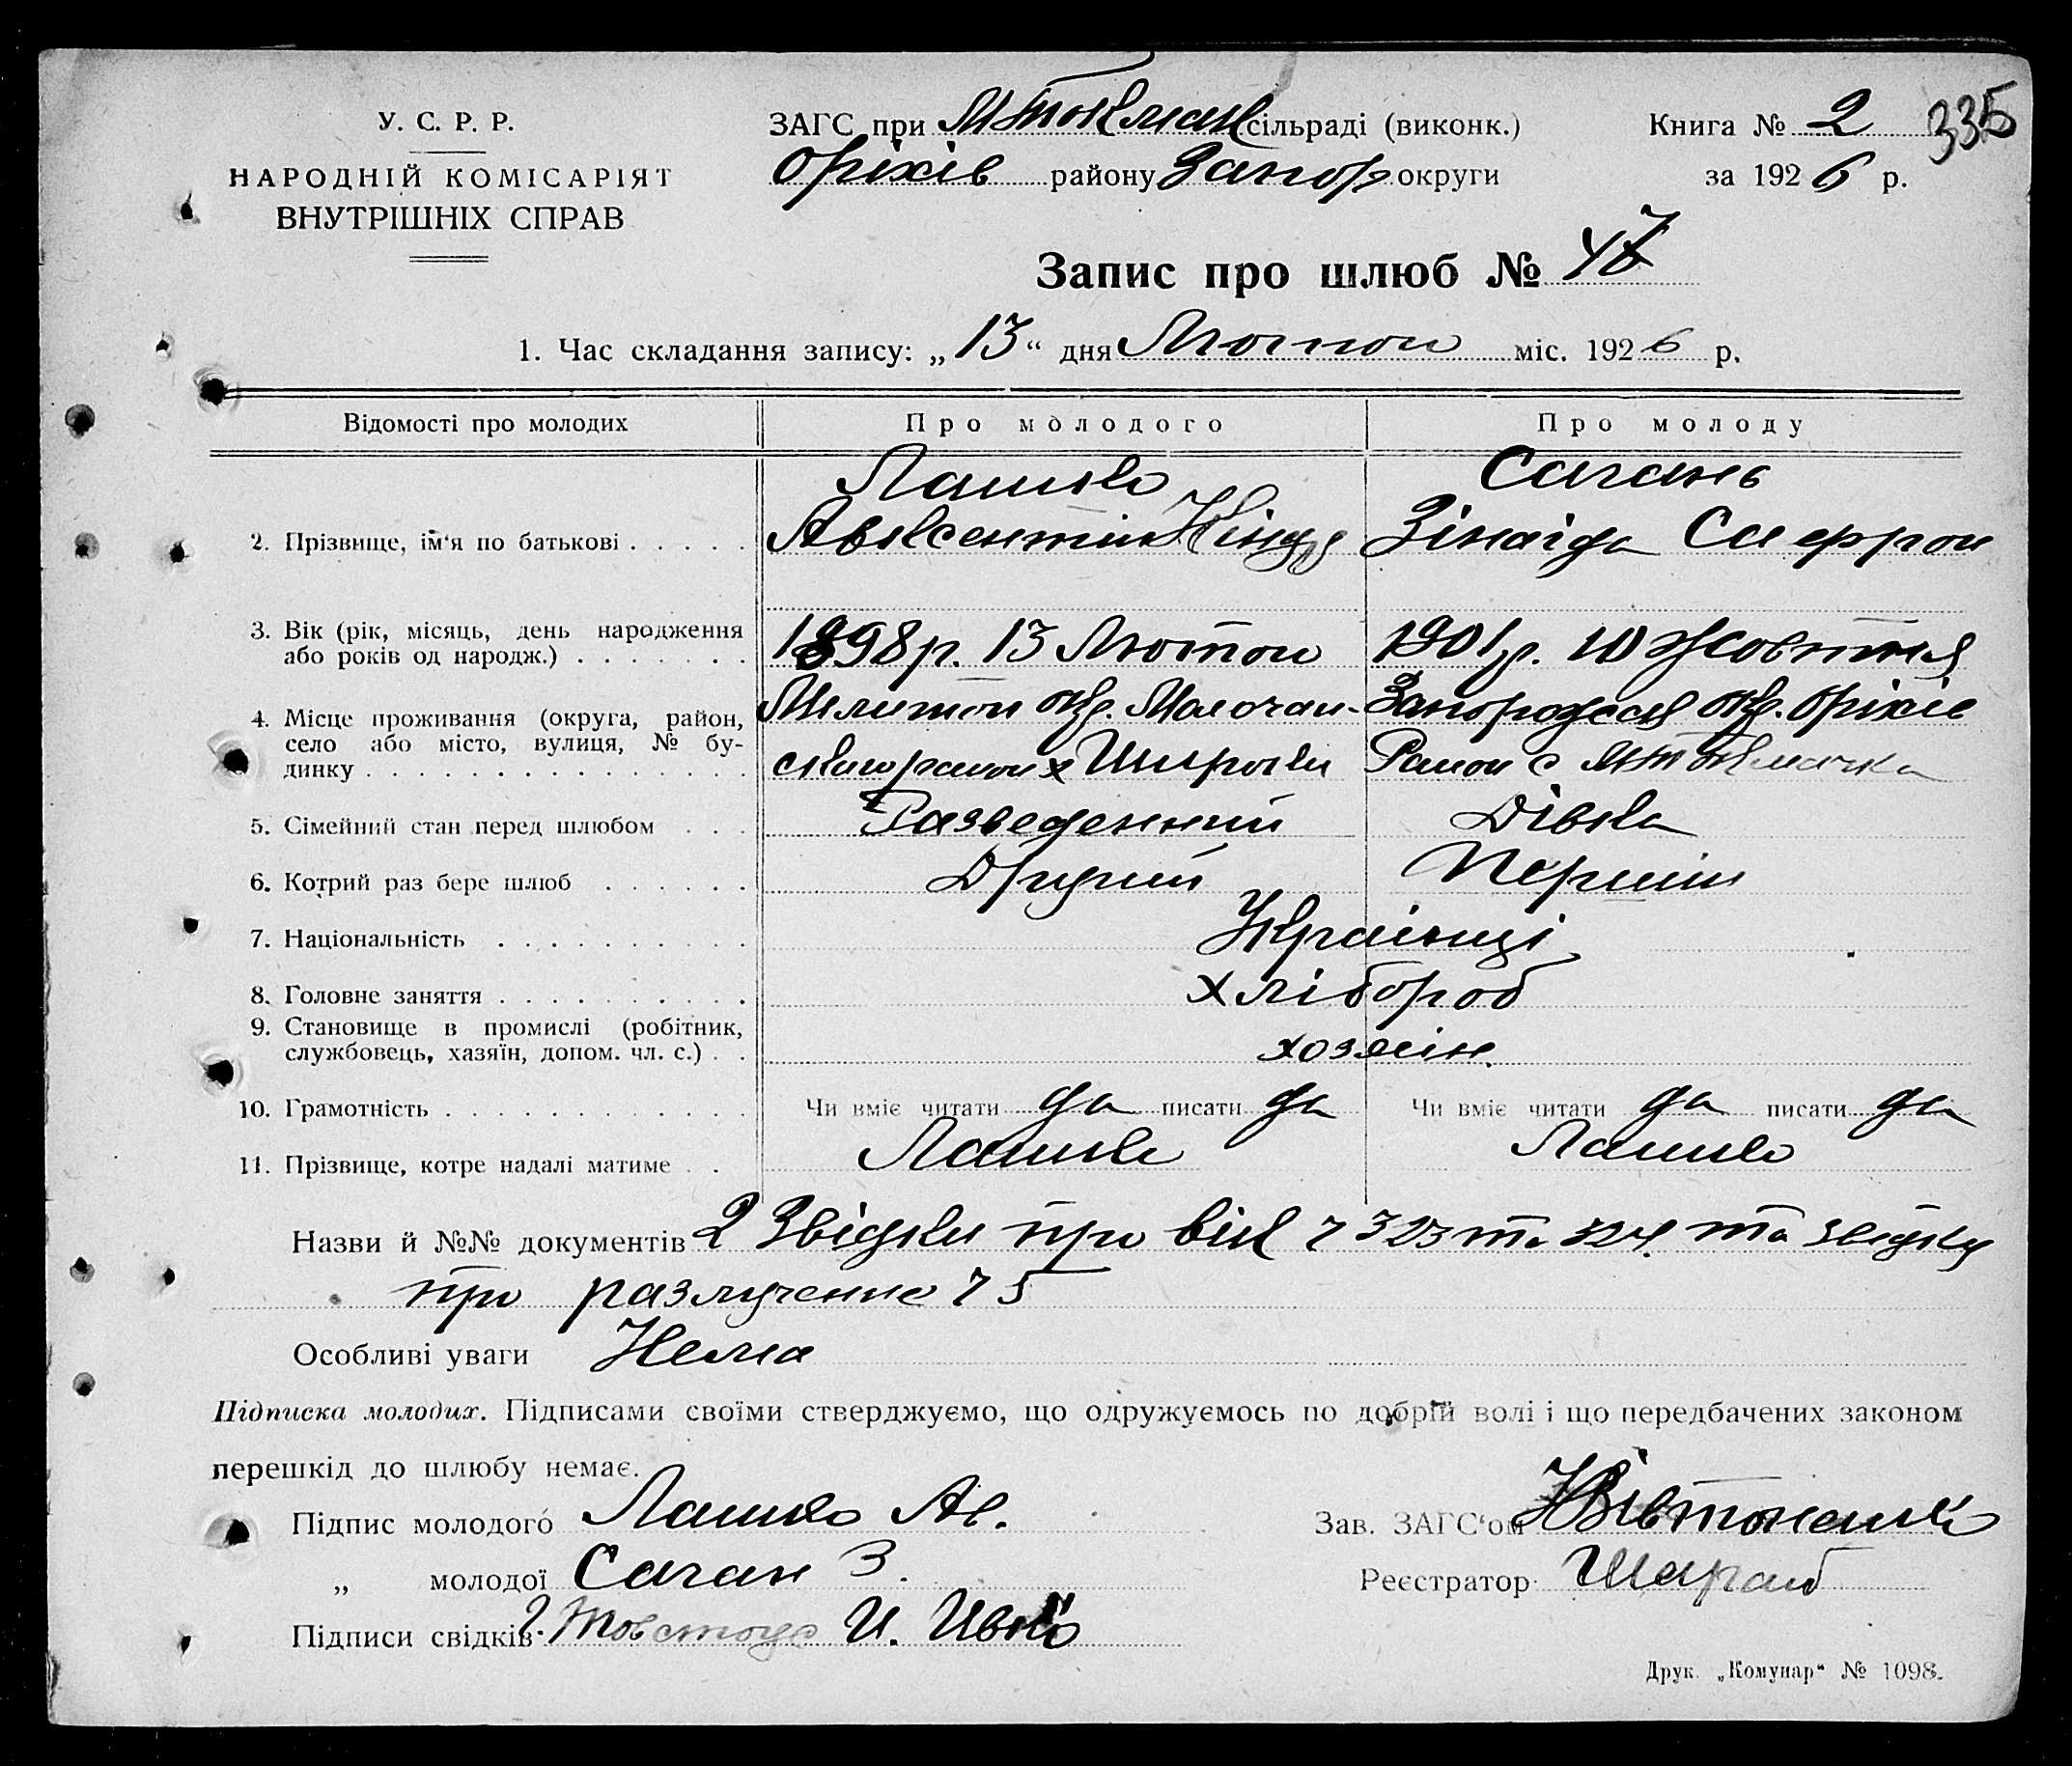 У. С. Р. Р.
НАРОДНІЙ КОМІСАРІЯТ
ВНУТРІШНІХ СПРАВ
ЗАГС при МТокмац сільраді (виконк.)
Оріхів району Запор округи
Книга № 2 335
за 1926 р.
Запис про шлюб № 47
1. Час складання запису: „13“ дня Лютого міс. 1926 р.
Відомості про молодих Про молодого Про молоду
Лашко Сагань
2. Прізвище, ім'я по батькові . . . . . Авксентій Зінаіда
3. Вік (рік, місяць, день народження
або років од народж.) . . . . . . . 1898 р. 13 Лютого 1901 р. 10 Жовтня
4. Місце проживання (округа, район,
село або місто, вулиця, № бу-
динку . . . . . . . . . . . . . . . .
Мелитоп окр. Молочан- Запорожская окр. Оріхів
ского району х Широки Район с МТокмачка
5. Сімейний стан перед шлюбом . . . Разведенний Дівка
6. Котрий раз бере шлюб . . . . . . Другий Перший
7. Національність . . . . . . . . . . Украінці
8. Головне заняття . . . . . . . . . . Хлібороб
9. Становище в промислі (робітник,
службовець, хазяїн, допом. чл. с.) . . хозяін
10. Грамотність . . . . . . . . . . . . Чи вміє читати да писати да Чи вміє читати да писати да
11. Прізвище, котре надалі матиме . . Лашко Лашко
Назви й №№ документів 2 Звідки про вік ч 323 та 324 та звідку
про разлучение ч 5
Особливі уваги Нема
Підписка молодих. Підписами своїми стверджуємо, що одружуємось по добрій волі і що передбачених законом
перешкід до шлюбу немає.
Підпис молодого Лашко Ав.
„ молодої Саган З.
Підписи свідків И.
Зав. ЗАГС'ом
Реєстратор
Друк. „Комунар“ № 1098.